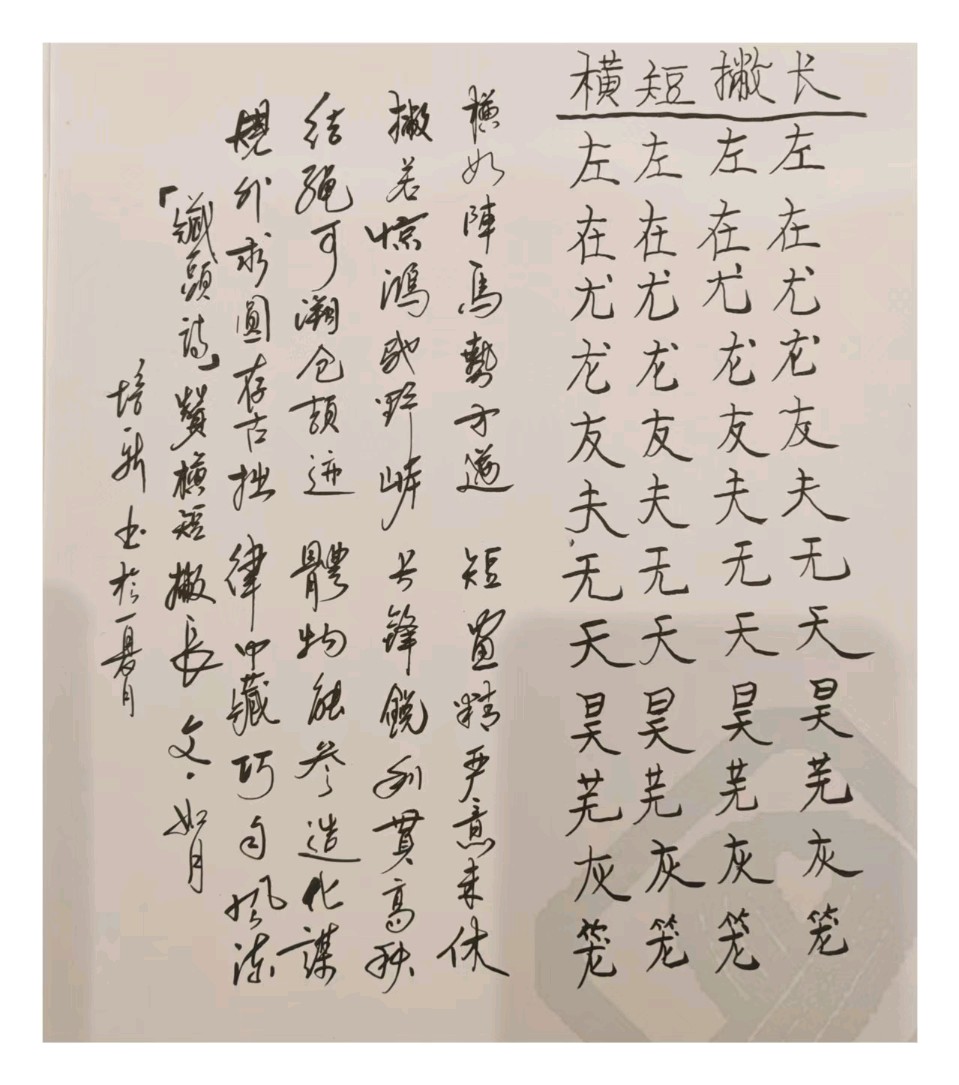 横短撇长
左左左左
在在在在
尤尤尤尤
龙龙龙龙
友友友友
夫夫夫夫
无无无无
天天天天
昊昊昊昊
芜芜芜芜
灰灰灰灰
笼笼笼笼
横如陣馬勢方遒 短畫精严意未休
撇若惊鸿野岸 长鋒鋭利貫高秋
结绳可溯仓颉迹 體物能参造化謀
規外求圓存古拙 律中藏巧自风流
「藏頭詩」赞横短撇長 文·如月
培新书於夏月